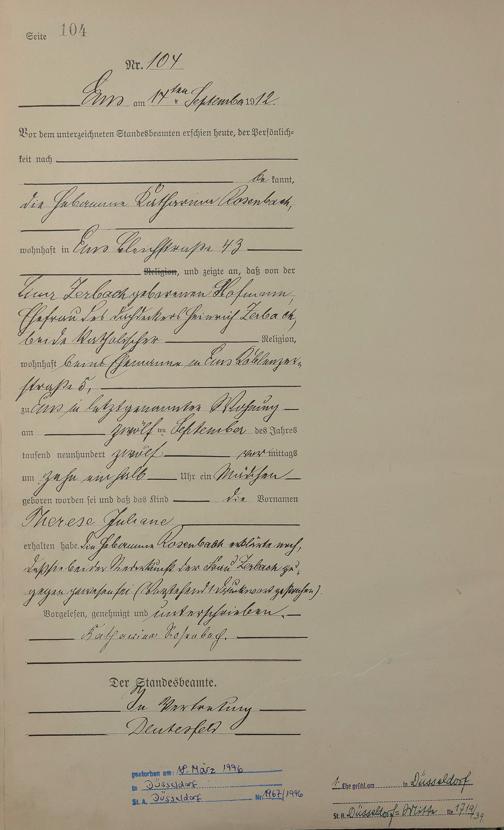 Seite 104
Nr. 104
Ems am 14ten September 1912.
Vor dem unterzeichneten Standesbeamten erschien heute, der Persönlich-
keit nach
be kannt,
die Hebamme Katharina Rosenbach,
wohnhaft in Ems Bleichstraße 43
Religion, und zeigte an, daß von der
Zerbach geborenen Hofmann,
Ehefrau des Dachdeckers Heinrich Zerbach,
beide katholischer Religion,
wohnhaft beim Ehemanne in Ems Koblenzer-
straße 5,
zu Ems in letztgenannter Wohnung
am zwölften September des Jahres
tausend neunhundert zwölf vor mittags
um zehn einhalb Uhr ein Mädchen
geboren worden sei und daß das Kind die Vornamen
Therese Juliane
erhalten habe. Die Hebamme Rosenbach erklärte noch,
daß sie bei der Niederkunft der Frau Zerbach zu-
gegen gewesen sei (Vorstehend 1 Druckwort gestrichen)
Vorgelesen, genehmigt und unterschrieben.
Katharina Rosenbach.
Der Standesbeamte.
In Vertretung
gestorben am: März 1996
in Düsseldorf
St. A. Düsseldorf Nr. /1996
1. Ehe geschl. am in Düsseldorf
St. A. Düsseldorf-Mitte Nr. 1719/39